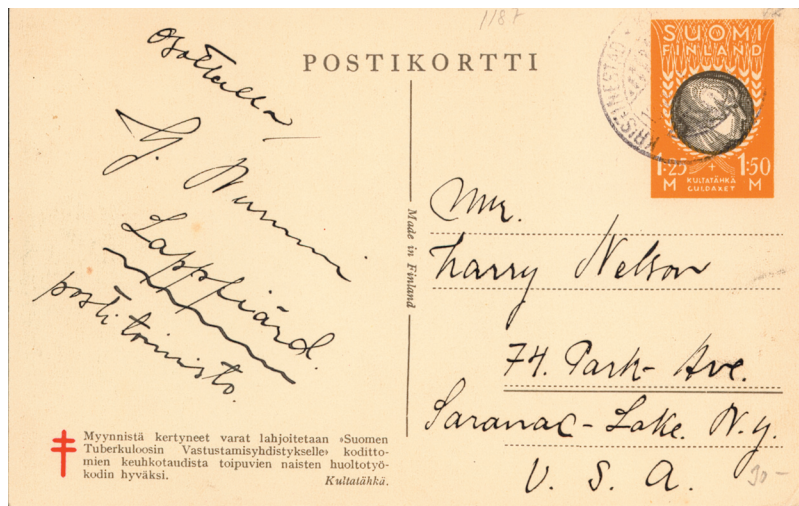 1187
POSTIKORTTI
SUOMI
FINLAND
1·25 + 1·50
M KULTATÄHKÄ M
GULDAXET
KRISTINESTAD
Made in Finland
Lappfiärd.
postitoimisto.
Mr.
Harry Nelson
74. Park- Ave.
Saranac-Lake. N.Y.
U. S. A.
90-
Myynnistä kertyneet varat lahjoitetaan »Suomen
Tuberkuloosin Vastustamisyhdistykselle» koditto-
mien keuhkotaudista toipuvien naisten huoltotyö-
kodin hyväksi.
Kultatähkä.